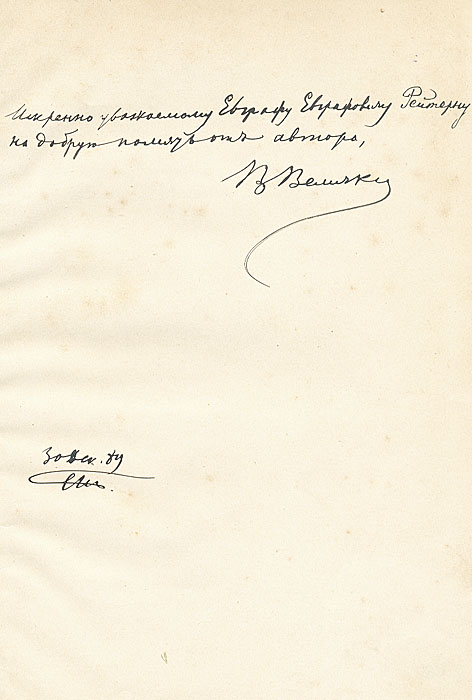 Искренно уважаемому Евграфу Евграфовичу Рейтерну
на добрую память отъ автора,
В Величко
30 Дек. 89
СПб.